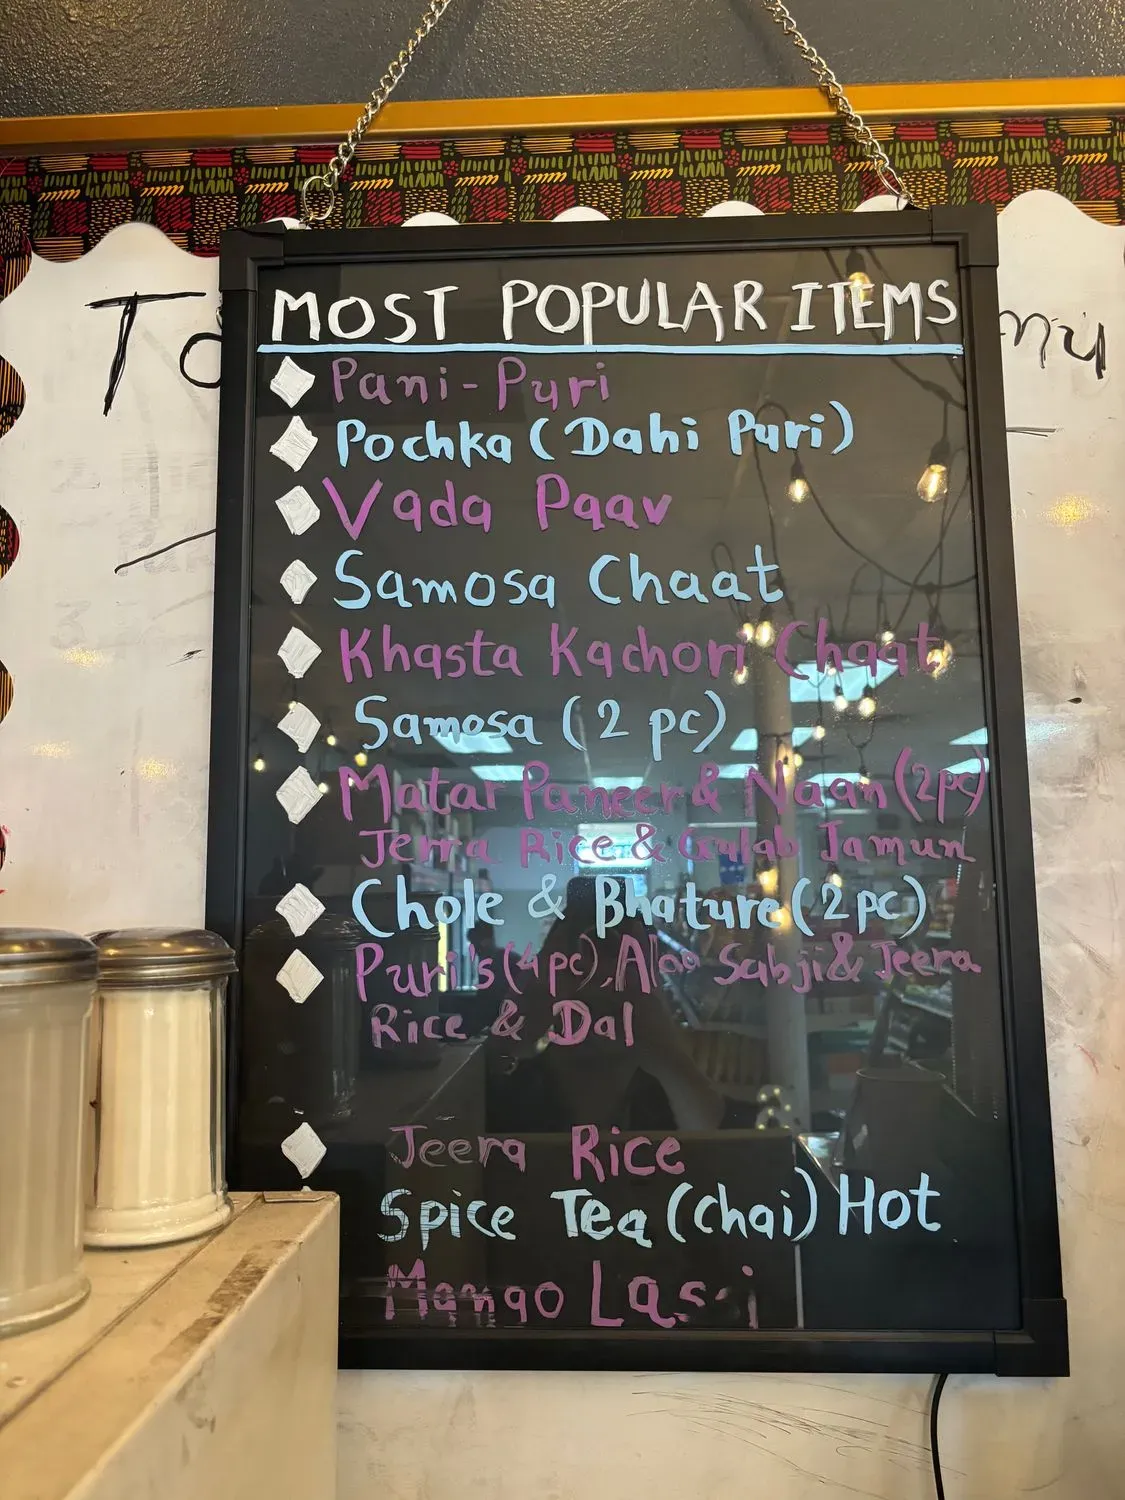 MOST POPULAR ITEMS
Pani-Puri
Pochka (Dahi Puri)
Vada Paav
Samosa Chaat
Khasta Kachori Chaat
Samosa (2 pc)
Matar Paneer & Naan (2pc)
Jerra Rice & Gulab Jamun
Chole & Bhature (2 pc)
Puri's (4 pc), Aloo Sabji & Jeera
Rice & Dal
Jeera Rice
Spice Tea (Chai) Hot
Mango Lassi